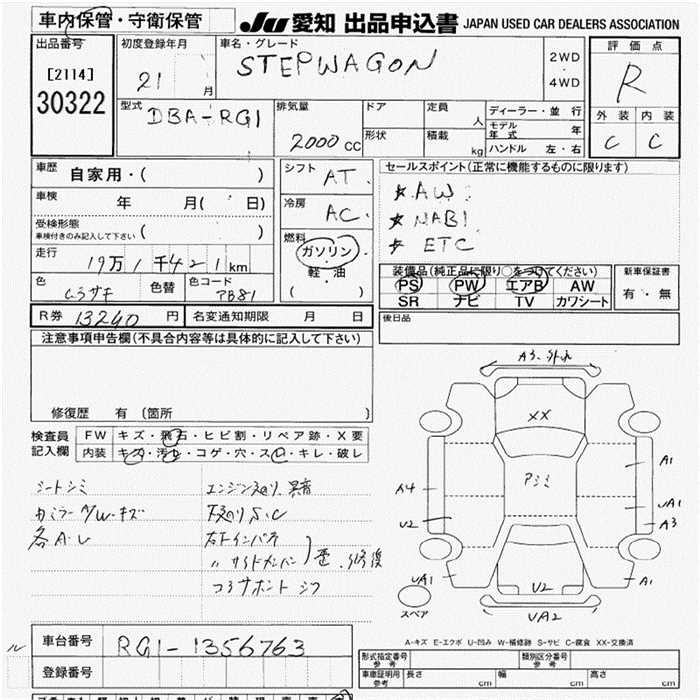 車内保管・守衛保管
JU 愛知 出品申込書 JAPAN USED CAR DEALERS ASSOCIATION
出品番号
[2114]
30322
初度登録年月
21 月
車名・グレード
STEPWAGON
2WD
・
4WD
評価点
R
外装 内装
C C
型式
DBA-RG1
排気量
2000 cc
ドア
形状
定員
人
積載
kg
ディーラー・並行
モデル年式 年
ハンドル 左・右
車歴
自家用・( )
車検
年 月( 日)
受検形態
車検付きのみ記入して下さい ( )
走行
19万1千421km
色
ムラサキ
色替
色コード
PB81
R券 13240 円
名変通知期限 月 日
シフト
AT
冷房
AC
燃料
ガソリン
軽・油
( )
セールスポイント(正常に機能するものに限ります)
★ AW
★ NABI
★ ETC
装備品(純正品に限り○をつけてください)
PS PW エアB AW
SR ナビ TV カワシート
新車保証書
有・無
後日品
注意事項申告欄(不具合内容等は具体的に記入して下さい)
修復歴 有 [箇所 ]
検査員記入欄
FW キズ・飛石・ヒビ割・リペア跡・X要
内装 キズ・汚レ・コゲ・穴・スレ・キレ・破レ
シートシミ
カミラーA/W・キズ
各A・U
右F インパネ
〃 サイドメンバー
修復
コアサポート
A3
XX
Pシミ
A4
U2
UA1
A1
UA1
A3
A1
U2
UA2
スペア
A-キズ E-エクボ U-凹み W-補修跡 S-サビ C-腐食 XX-交換済
車台番号
RG1-1356763
登録番号
形式指定番号
参考
類別区分番号
参考
車庫証明用
参考
長さ cm
幅 cm
高さ cm